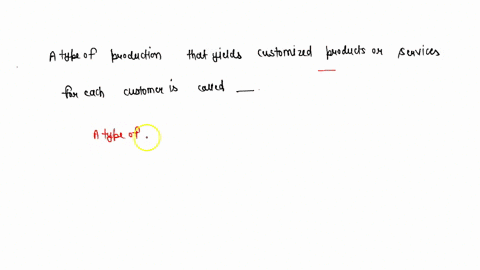 A type of production that yields customized products or services
for each customer is called ___.
A type of